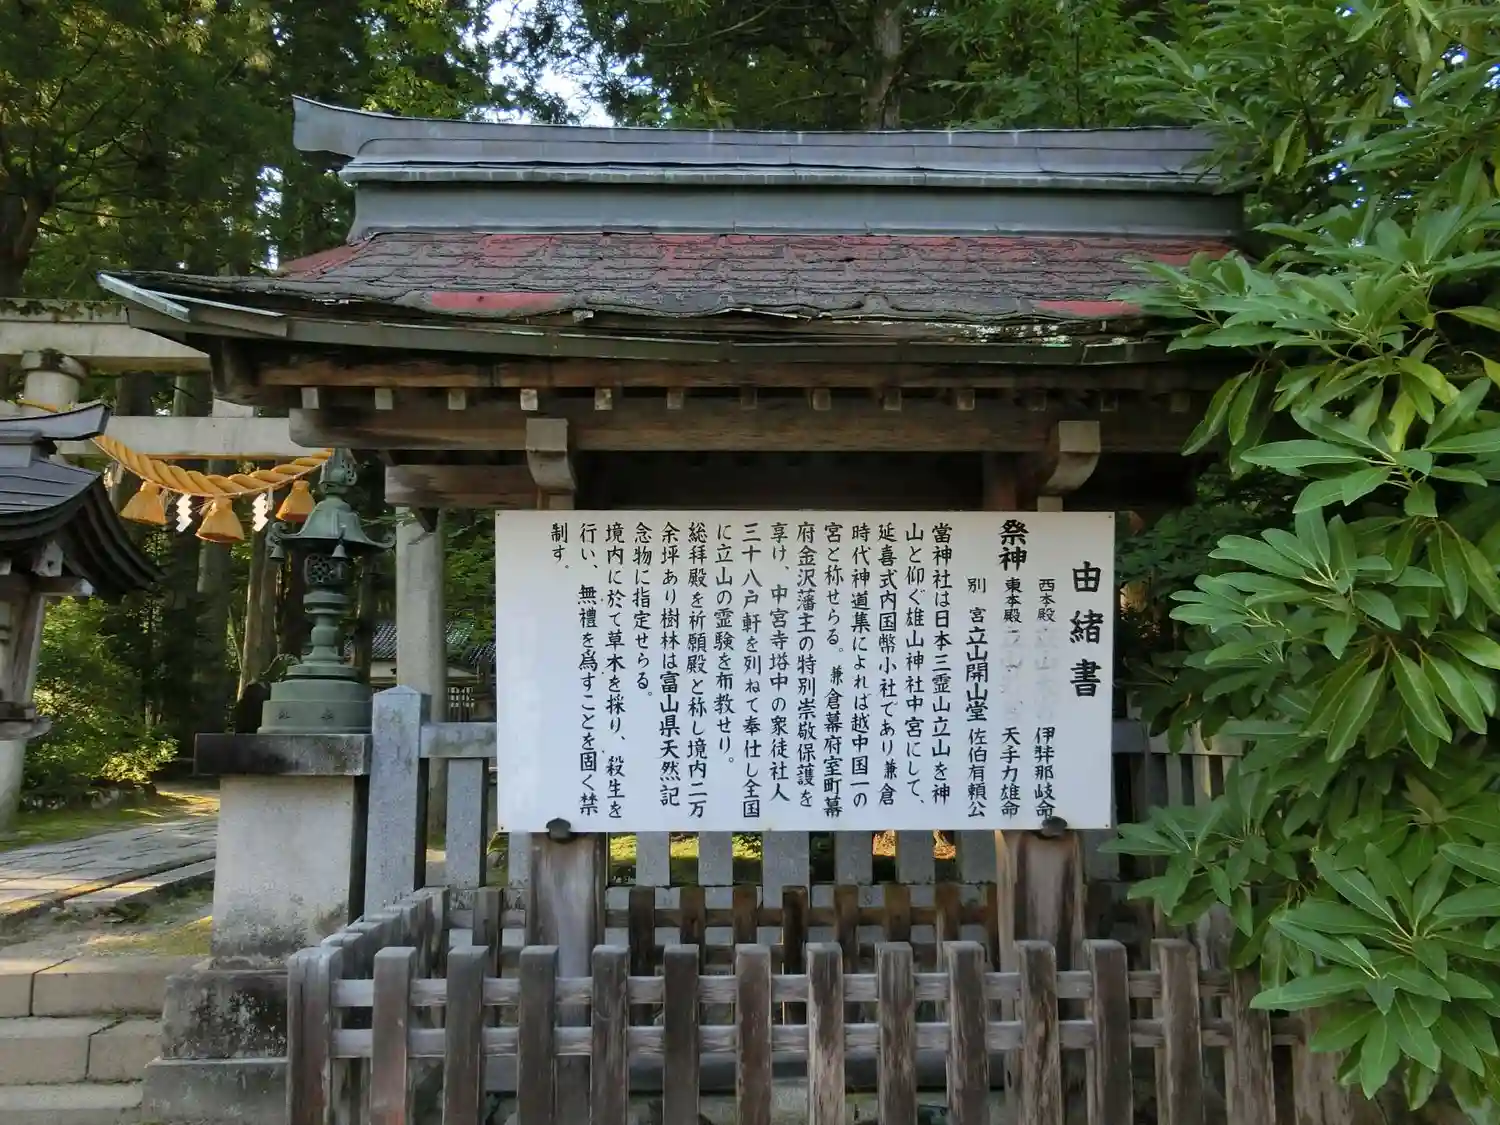 由緒書
祭神
西本殿 伊弉那岐命
東本殿 天手力雄命
別宮 立山開山堂 佐伯有頼公
當神社は日本三霊山立山を神
山と仰ぐ雄山神社中宮にして、
延喜式内国幣小社であり兼倉
時代神道集によれば越中国一の
宮と称せらる。兼倉幕府室町幕
府金沢藩主の特別崇敬保護を
享け、中宮寺塔中の衆徒社人
三十八戸軒を列ねて奉仕し全国
に立山の霊験を布教せり。
総拝殿を祈願殿と称し境内二万
余坪あり樹林は富山県天然記
念物に指定せらる。
境内に於て草木を採り、殺生を
行い、無禮を爲すことを固く禁
制す。